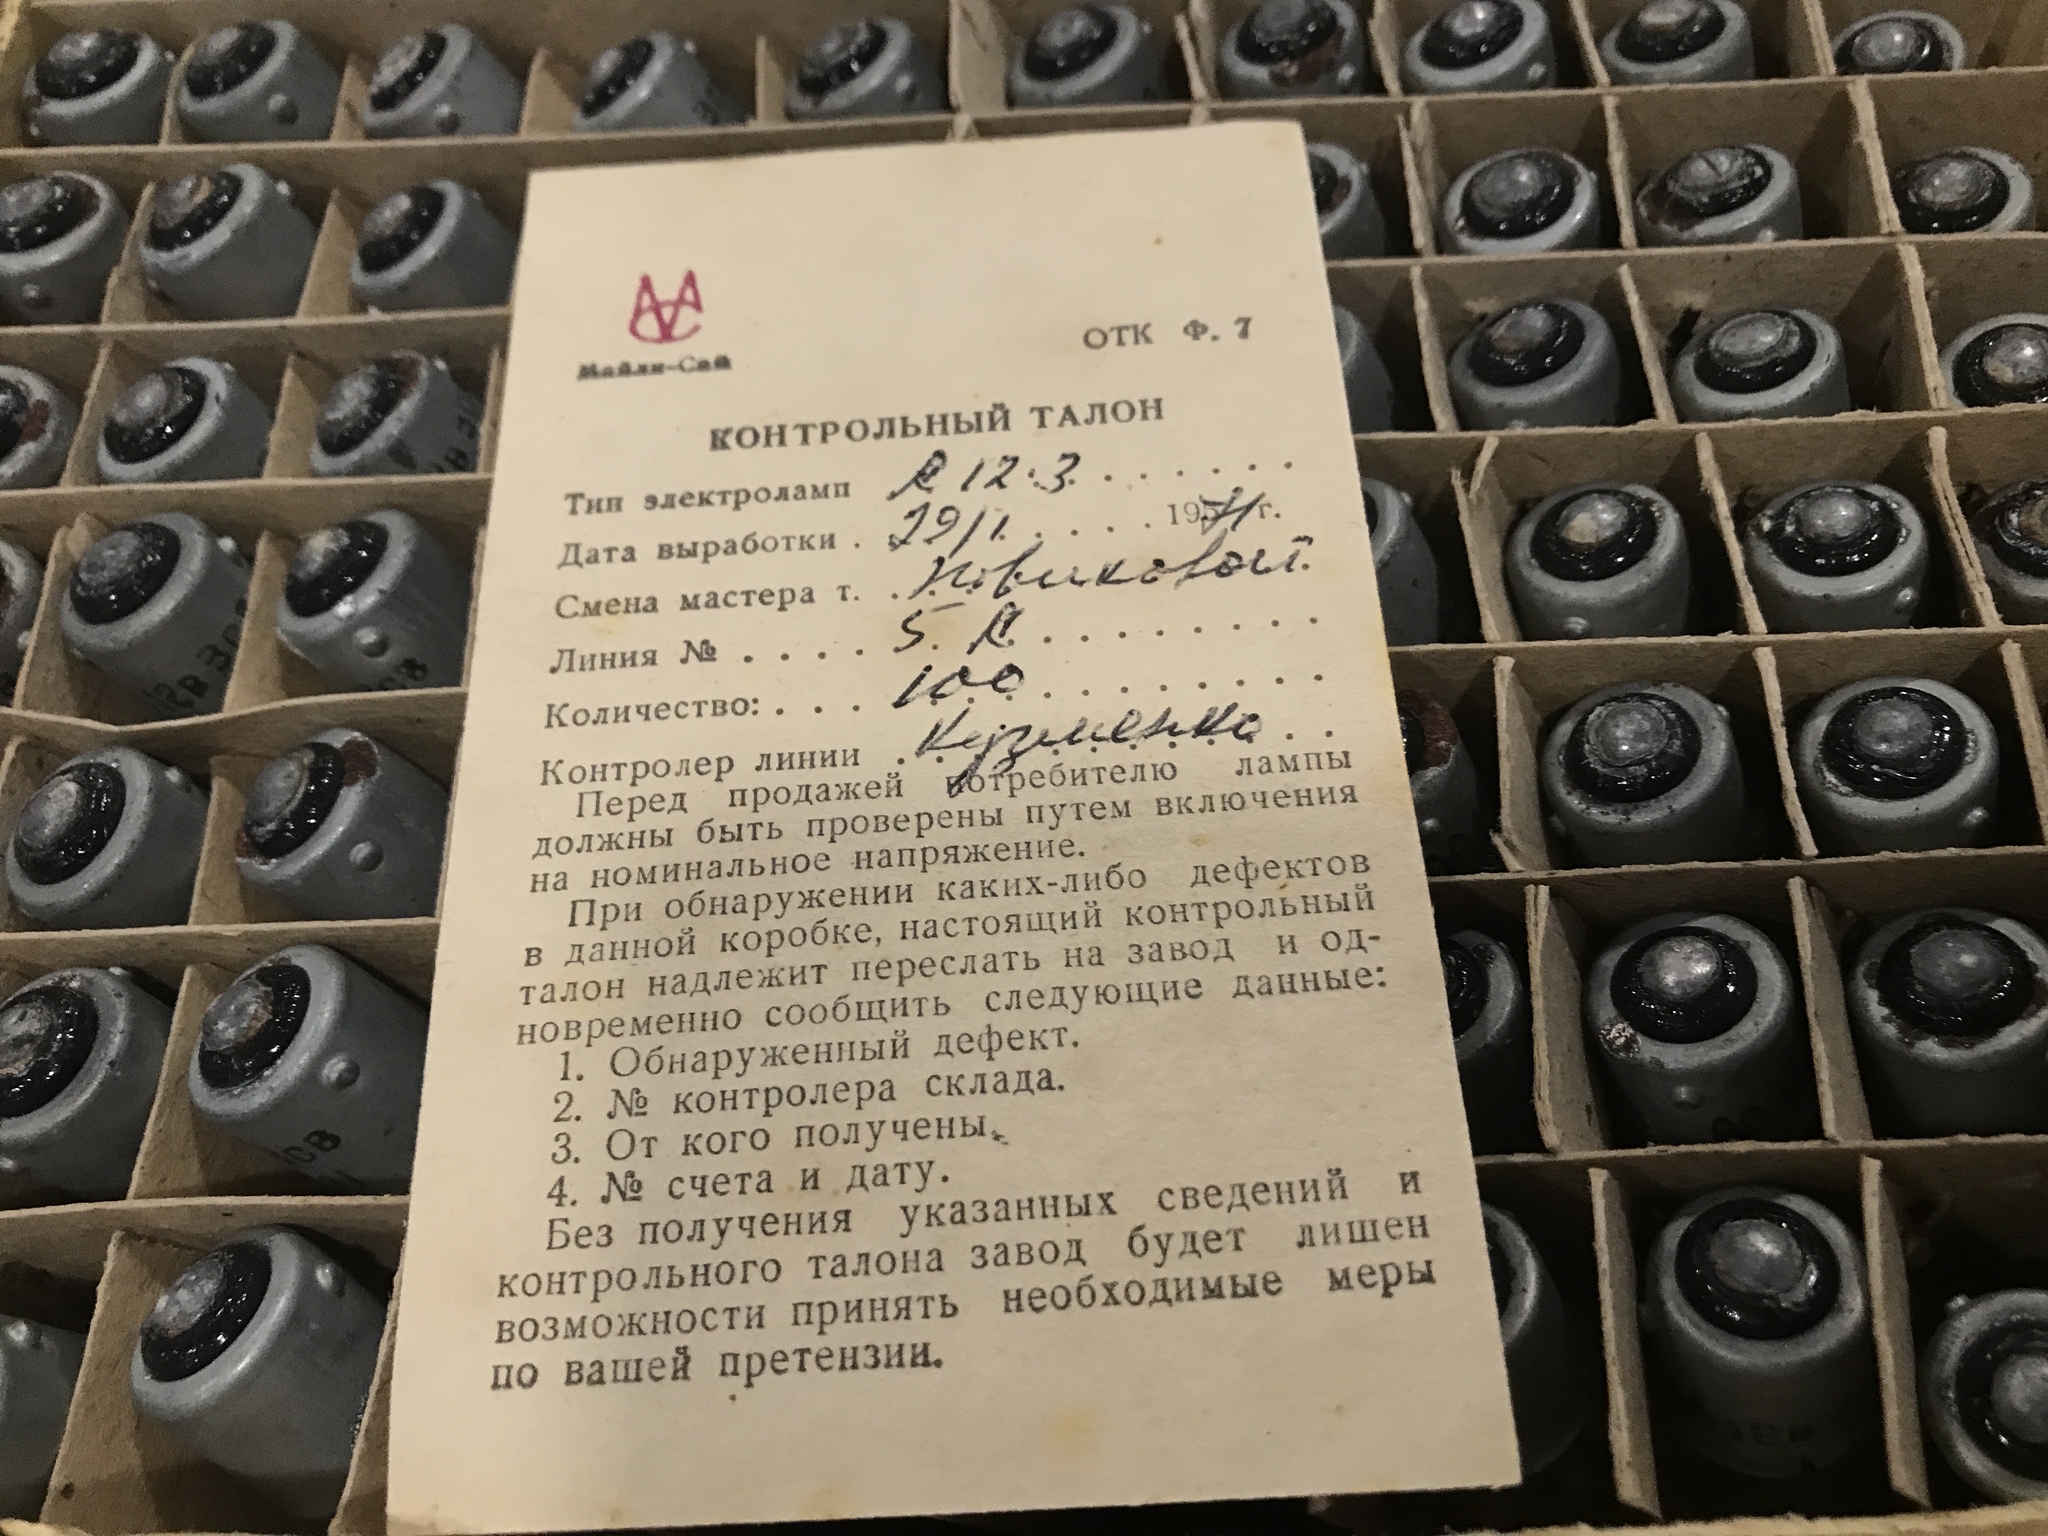 Майли-Сай
ОТК Ф. 7
КОНТРОЛЬНЫЙ ТАЛОН
Тип электроламп А 12-3
Дата выработки . 29/I. . . . . 1971 г.
Смена мастера т. . Новиковой.
Линия № . . . . 5. А. . . . . . . . .
Количество: . . . 100 . . . . . . . . .
Контролер линии . Кузменко . .
Перед продажей потребителю лампы
должны быть проверены путем включения
на номинальное напряжение.
При обнаружении каких-либо дефектов
в данной коробке, настоящий контрольный
талон надлежит переслать на завод и од-
новременно сообщить следующие данные:
1. Обнаруженный дефект.
2. № контролера склада.
3. От кого получены.
4. № счета и дату.
Без получения указанных сведений и
контрольного талона завод будет лишен
возможности принять необходимые меры
по вашей претензии.